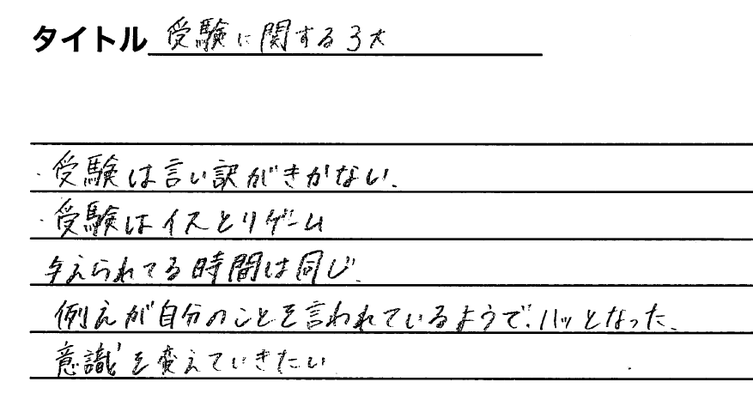 タイトル 受験に関する3大
・受験は言い訳がきかない.
・受験はイスとりゲーム
与えられてる時間は同じ.
例えが自分のことを言われているようで、ハッとなった.
意識を変えていきたい